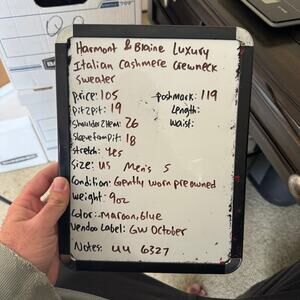 Harmont & Blaine Luxury
Italian Cashmere Crewneck
Sweater
Price: 105 Poshmark: 119
Pit2Pit: 19 Length:
Shoulder2Hem: 26 Waist:
SleevefromPit: 18
Stretch: Yes
Size: US Men's S
Condition: Gently worn preowned
Weight: 9oz
Color: maroon, blue
Vendoo Label: GW October
Notes: UU 6327